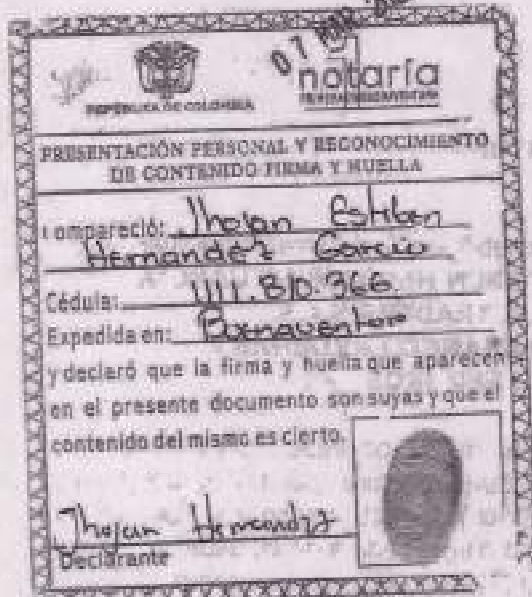 07 MAR
notaría
REPÚBLICA DE COLOMBIA
PRESENTACIÓN PERSONAL Y RECONOCIMIENTO
DE CONTENIDO FIRMA Y HUELLA
compareció: Jhojan Estiben
Hernandez Garcia
Cédula: 1111.810.366
Expedida en: Buenaventura
y declaró que la firma y huella que aparecen
en el presente documento son suyas y que el
contenido del mismo es cierto.
Jhojan Hernandez
Declarante